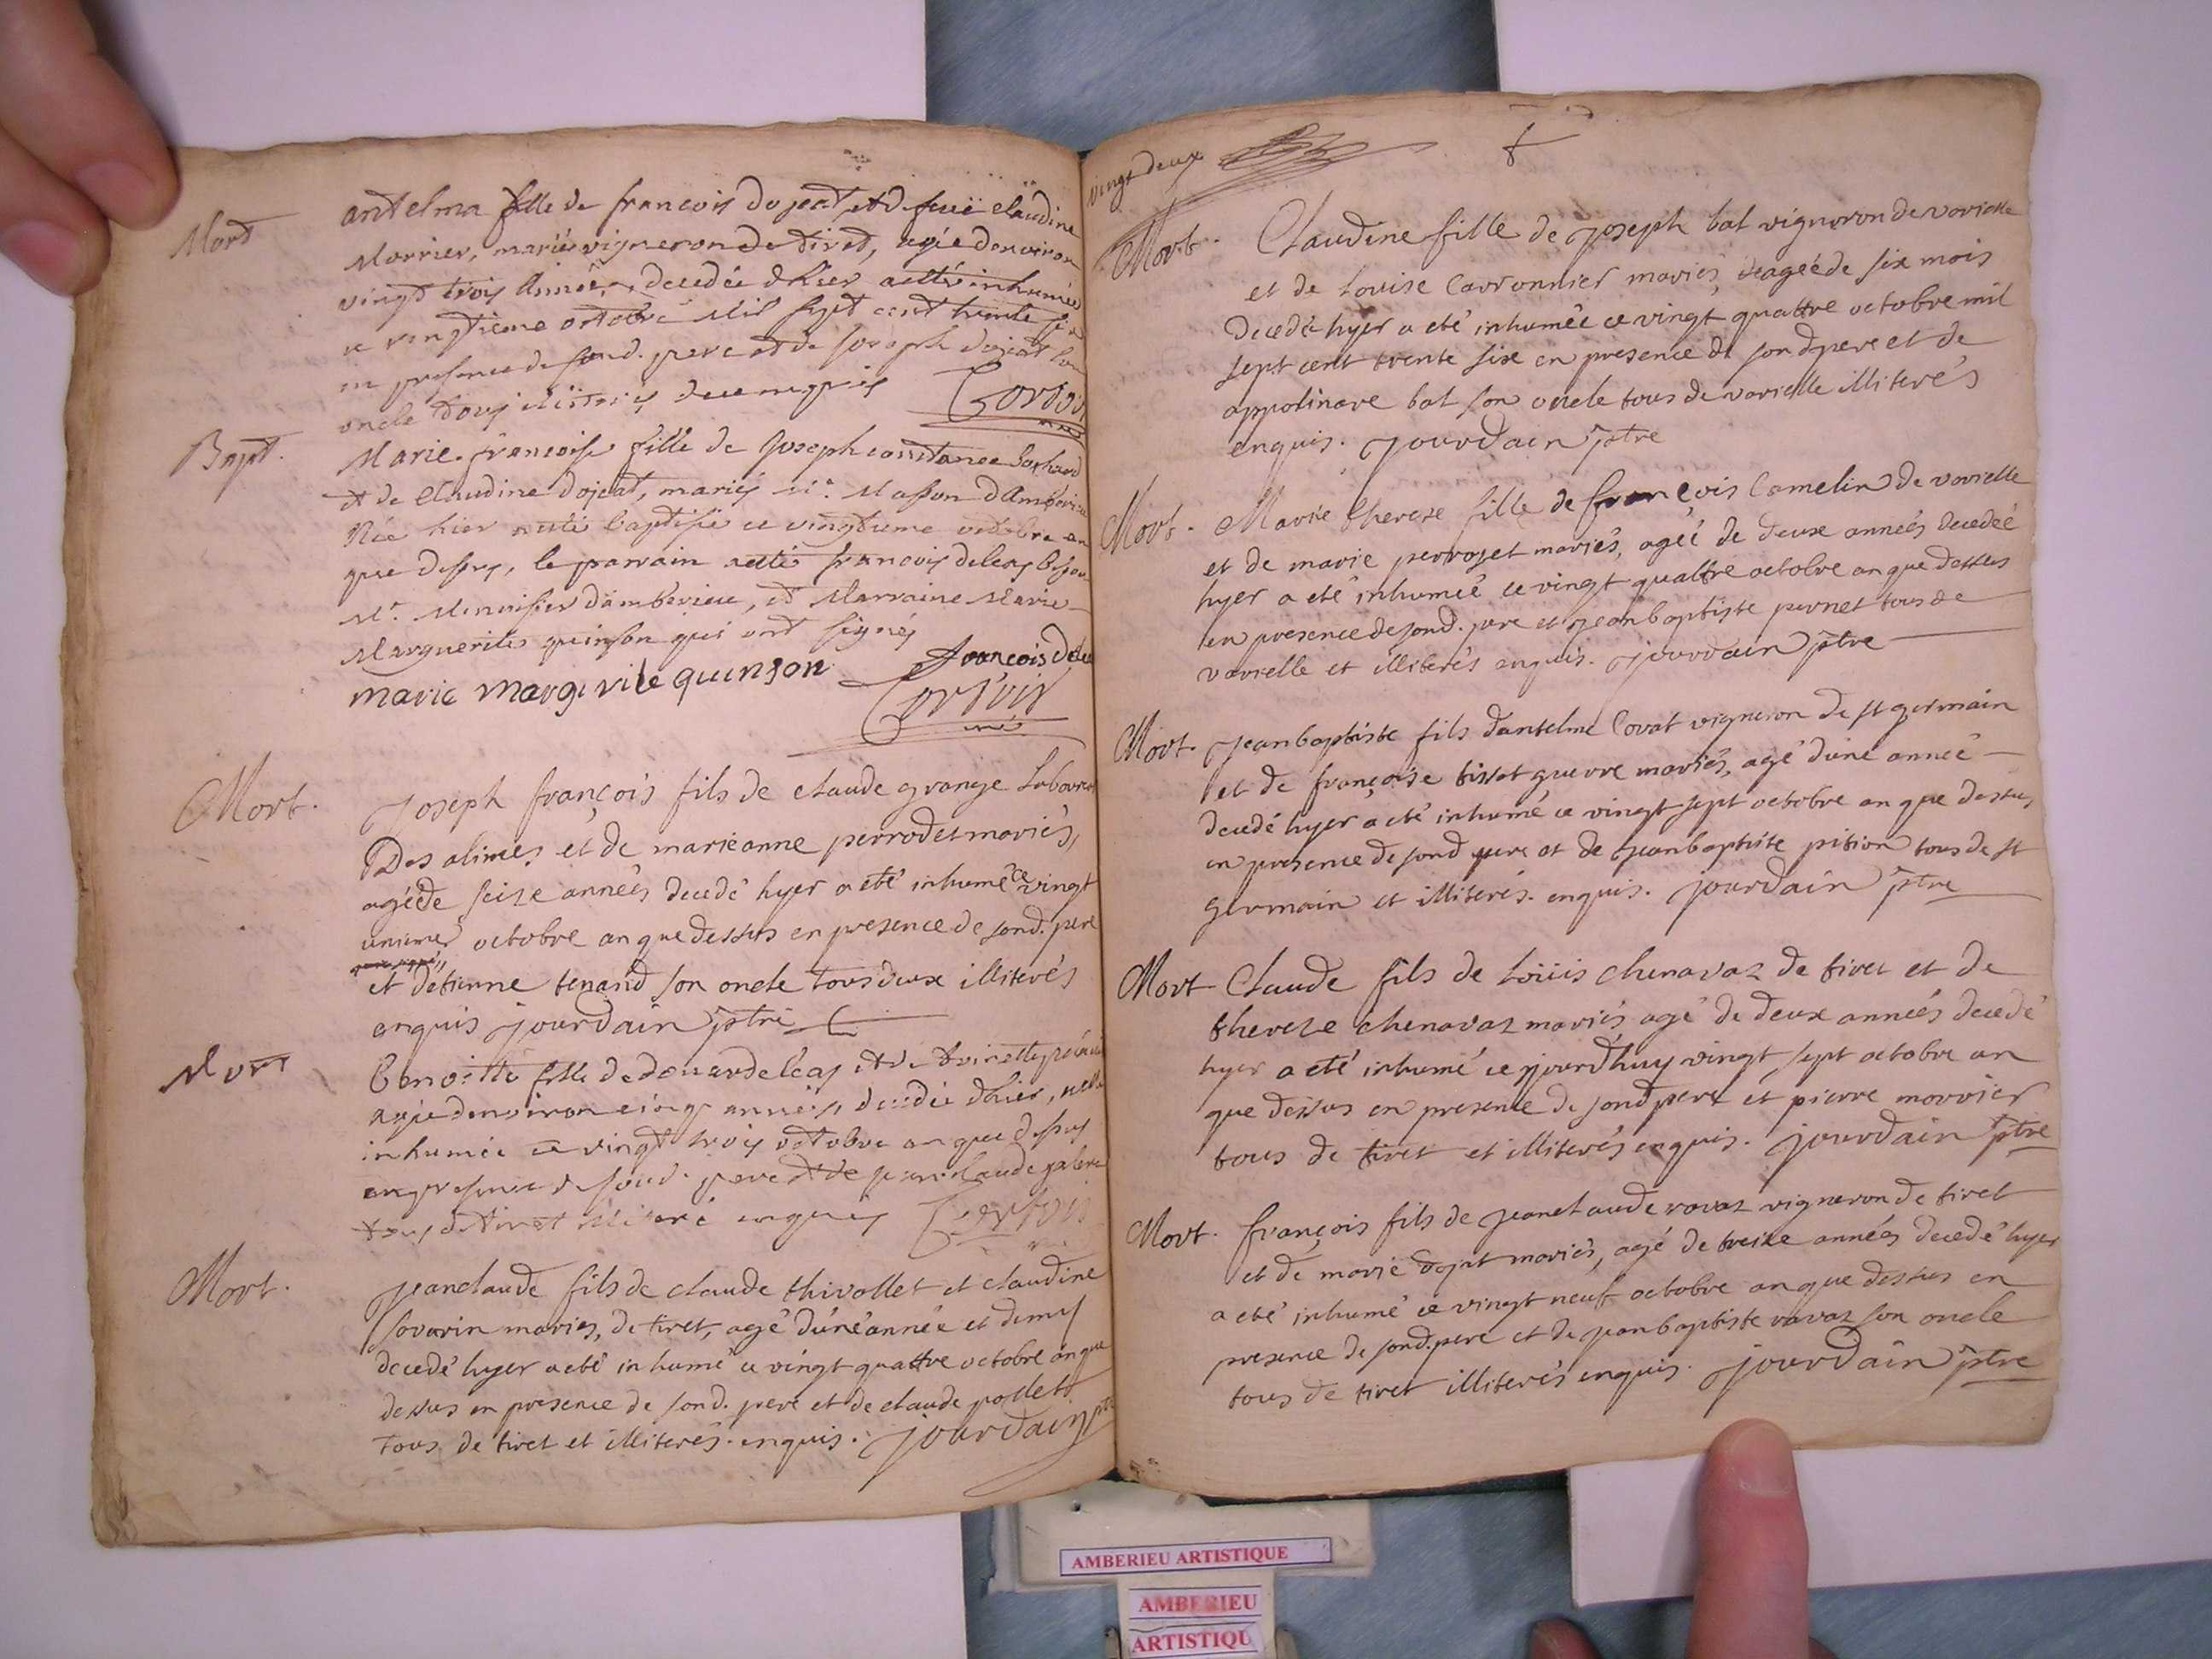 Mort
antelma fille de francois dojeat et de feüe claudine
Morrier, mariés vigneron de tiret, agée denviron
vingt trois années, decedée dhier a etté inhumée
ce vingtieme octobre Mil sept cent trente six
en presence de sond. pere et de joseph dojeat son
oncle tous de enquis
Bapt.
Marie francoise fille de Joseph constance
et de Claudine dojeat, mariés Me. Masson dAmberieu
Née hier a eté baptisée ce vingtunme octobre an
que dessus, le parrain a etté francois deleas
Mr. Menuisier d'amberieu, et Marraine Marie
Marguerite quinson qui ont signés
marie margverite quinson francois
Mort.
Joseph françois fils de claude grange Laboureur
Des alimes et de marieanne perrodet mariés,
agé de seize années decedé hyer a eté inhumé ce vingt
unieme octobre an que dessus en presence de sond. pere
et detienne tenand son oncle tous deux illiterés
enquis jourdain ptre
Mort
Benoitte fille de edouard deléas et de
agée denviron cinq années, decedée dhier, a etté
inhumée ce vingt trois octobre an que dessus
en presence de sond. pere et de jean claude
tous de tiret illiteré enquis
Mort.
Jeanclaude fils de claude thivollet et claudine
savarin mariés, de tiret, agé d'une année et demy
decedé hyer a eté inhumé ce vingt quattre octobre an que
dessus en presence de sond. pere et de claude pollet
tous de tiret et illiterés. enquis. jourdain ptre
vingt deux
Mort.
Claudine fille de joseph bal vigneron de varielle
et de Louise Carronnier mariés, agée de six mois
decedée hyer a eté inhumée ce vingt quattre octobre mil
sept cent trente six en presence de son d pere et de
appolinare bal son oncle tous de varielle illiterés
enquis. jourdain ptre
Mort.
Marie therese fille de françois Camelin de varielle
et de marie perrozet mariés, agée de deux années decedée
hyer a eté inhumée ce vingt quattre octobre an que dessus
en presence de sond. pere et jeanbaptiste pernet tous de
varielle et illiterés enquis. jourdain ptre
Mort.
jeanbaptiste fils dantelme Covat vigneron de st germain
et de françoise tissot guerre mariés, agé dune année
decedé hyer a eté inhumé ce vingt sept octobre an que dessus
en presence de sond pere et de jeanbaptiste pition tous de st
germain et illiterés. enquis. jourdain ptre
Mort
Claude fils de Loüis chenavaz de tiret et de
therese chenavaz mariés agé de deux années decedé
hyer a eté inhumé ce jourdhuy vingt sept octobre an
que dessus en presence de sond pere et pierre morrier
tous de tiret et illiterés enquis. jourdain ptre
Mort.
françois fils de jeanclaude ravaz vigneron de tiret
et de marie dojat mariés, agé de treize années decedé hyer
a eté inhumé ce vingt neuf octobre an que dessus en
presence de sond. pere et de jeanbaptiste ravaz son oncle
tous de tiret illiterés enquis. jourdain ptre
AMBERIEU ARTISTIQUE
AMBERIEU
ARTISTIQU